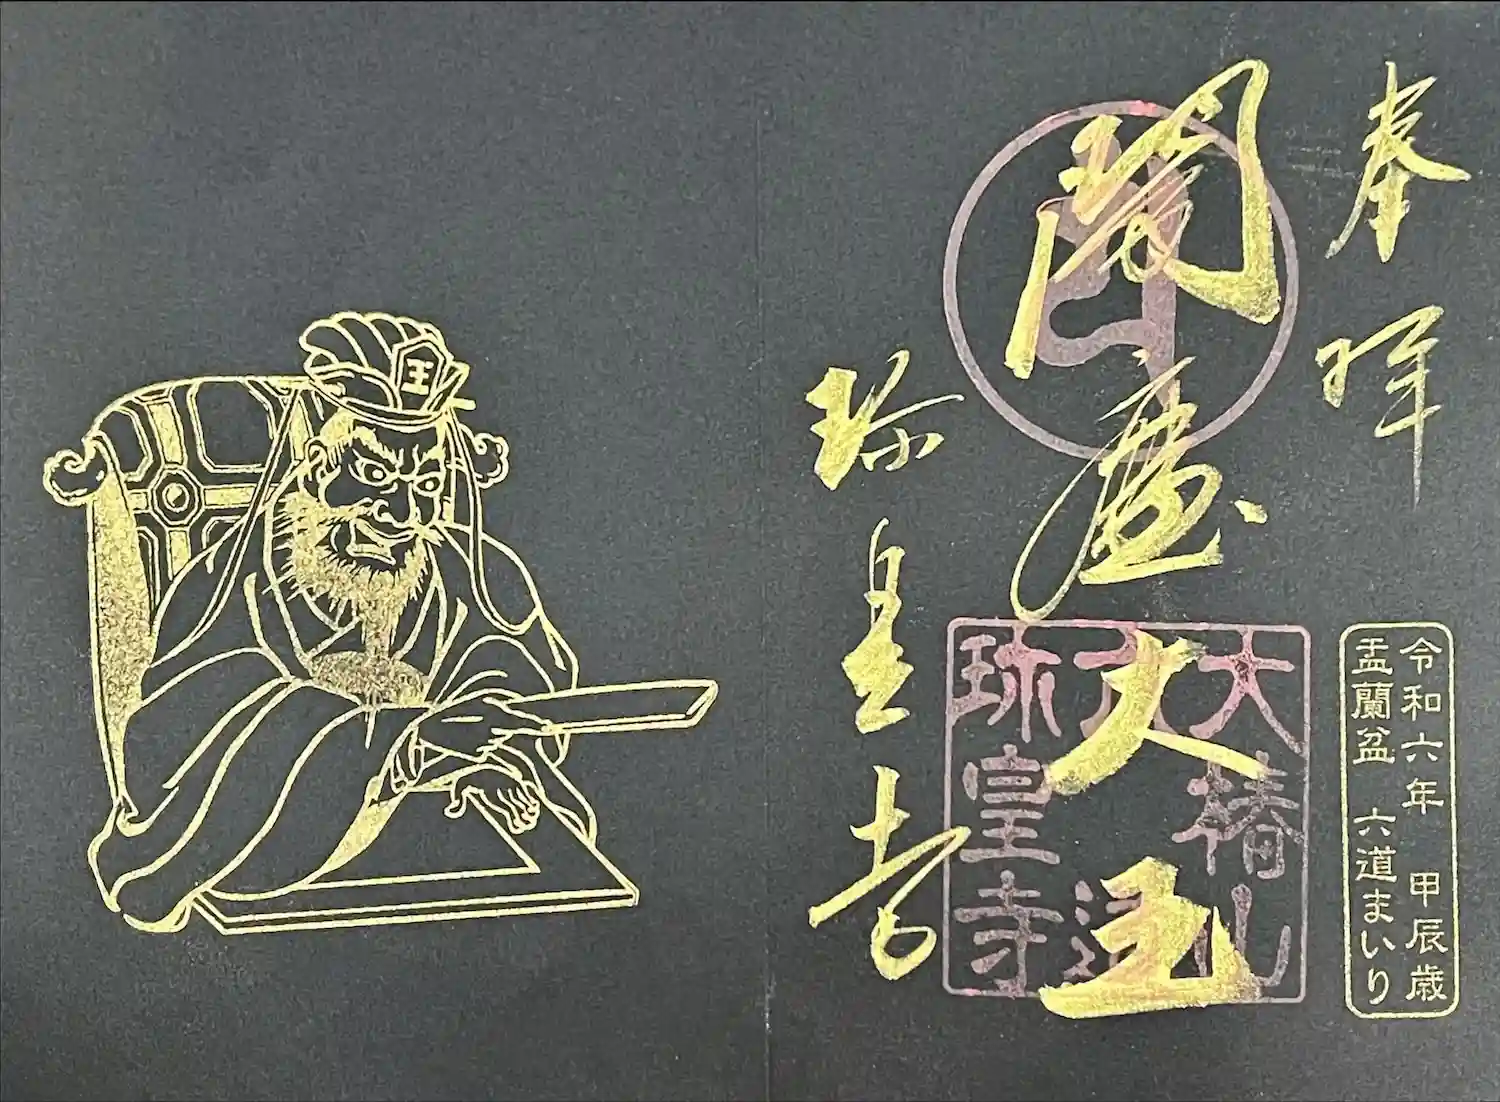 奉拝
令和六年　甲辰歳
盂蘭盆　六道まいり
閻魔大王
大椿山
六道
珎皇寺
珎皇寺
王